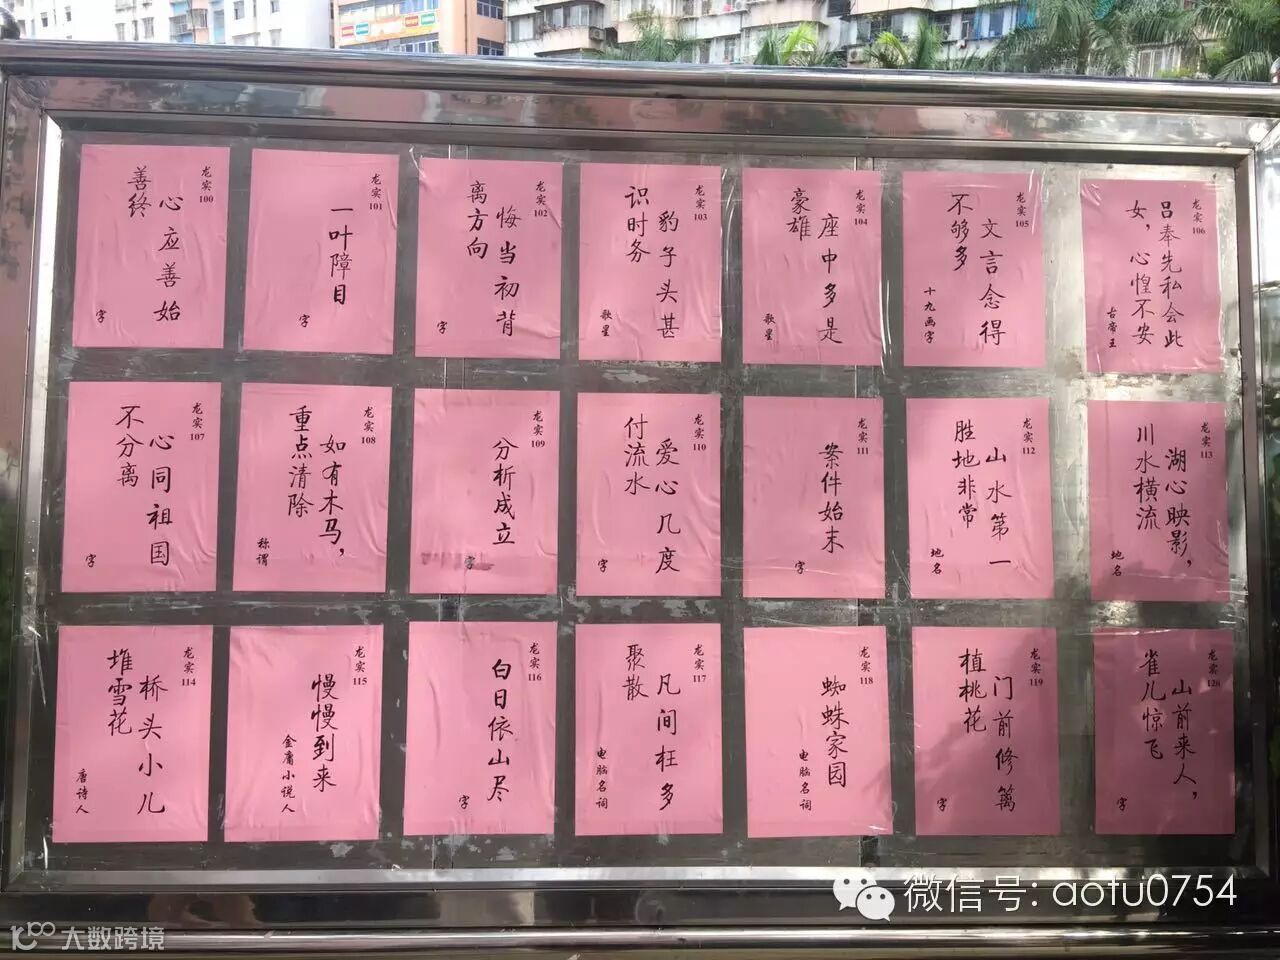 龙实
100
心应善始
善终
字
龙实
101
一叶障目
字
龙实
102
悔当初背
离方向
字
龙实
103
豹子头甚
识时务
歌星
龙实
104
座中多是
豪雄
歌星
龙实
105
文言念得
不够多
十九画字
龙实
106
吕奉先私会此
女，心惶不安
古帝王
龙实
107
心同祖国
不分离
字
龙实
108
如有木马，
重点清除
称谓
龙实
109
分析成立
字
龙实
110
爱心几度
付流水
字
龙实
111
案件始末
字
龙实
112
山水第一
胜地非常
地名
龙实
113
湖心映影，
川水横流
地名
龙实
114
桥头小儿
堆雪花
唐诗人
龙实
115
慢慢到来
金庸小说人
龙实
116
白日依山尽
字
龙实
117
凡间枉多
聚散
电脑名词
龙实
118
蜘蛛家园
电脑名词
龙实
119
门前修篱
植桃花
字
龙实
120
山前来人，
雀儿惊飞
字
微信号: aotu0754
大数跨境